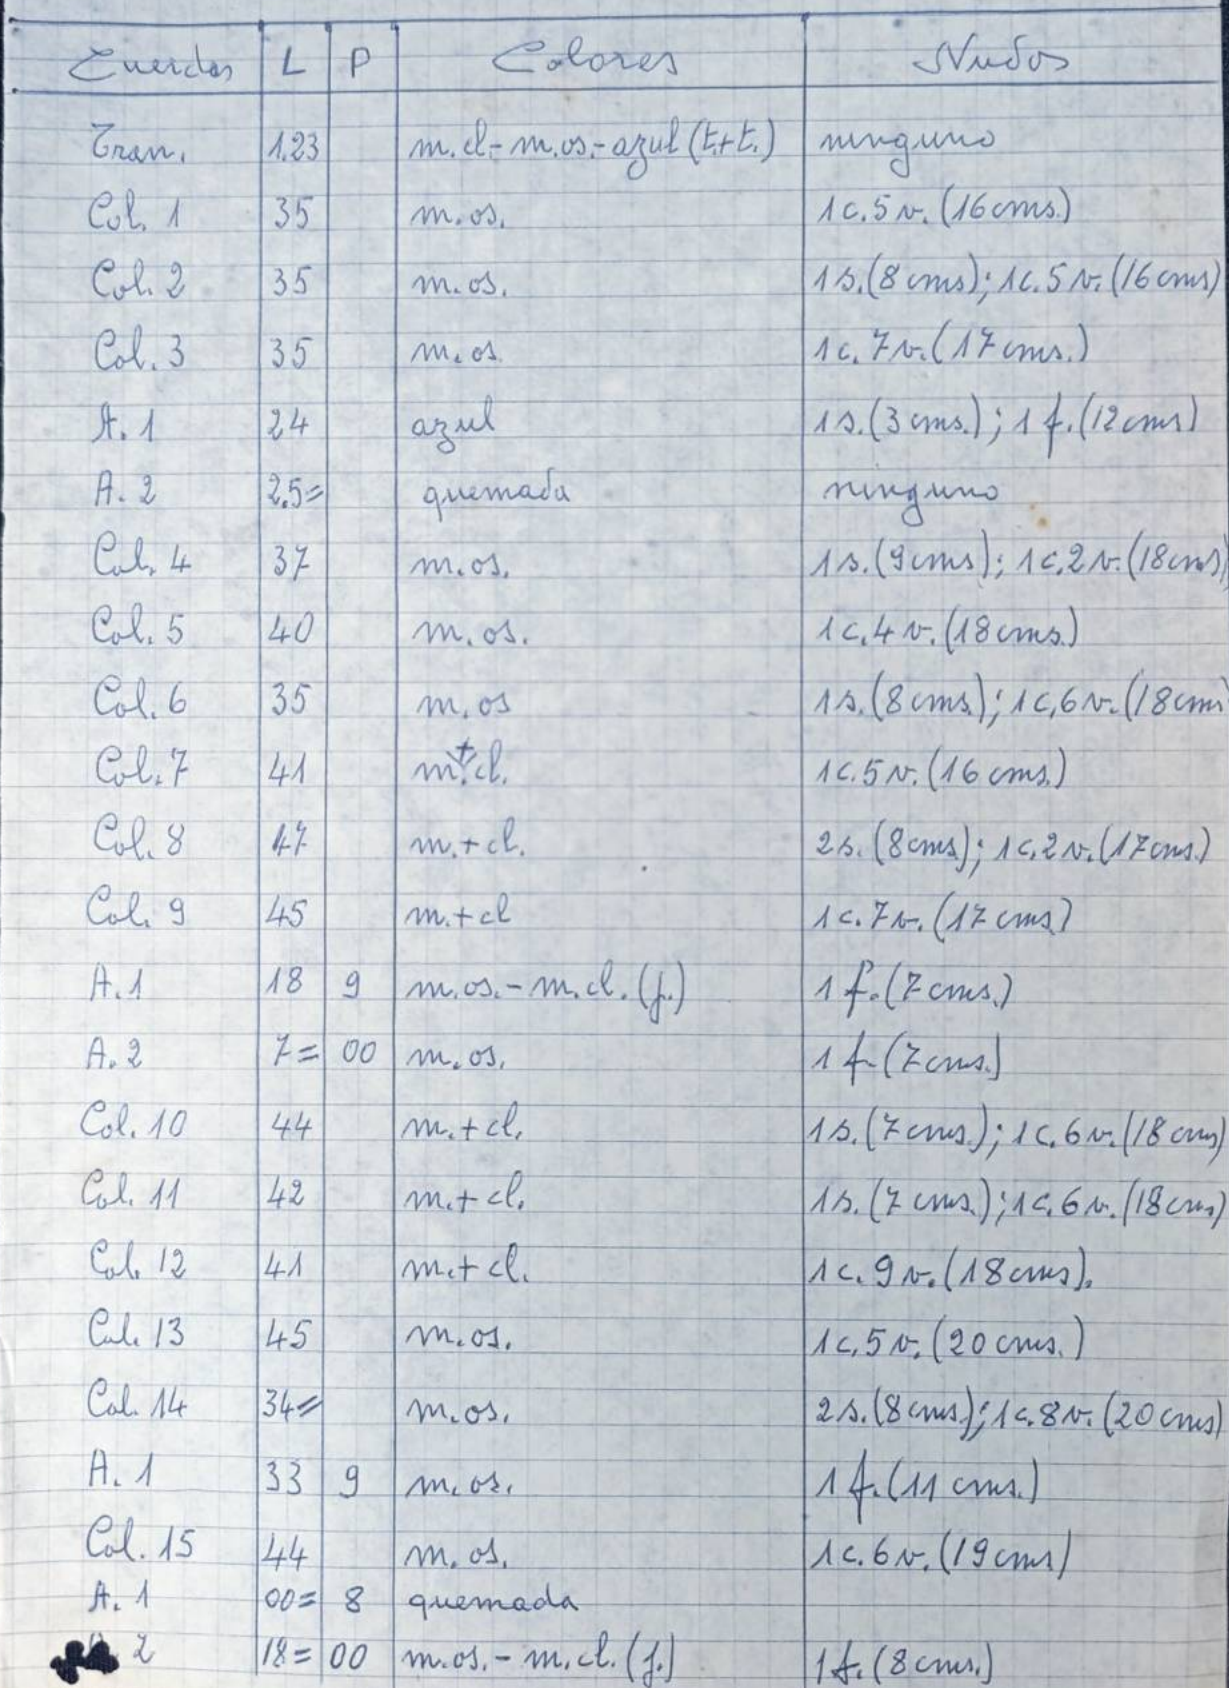 Cuerdas L P Colores Nudos
Tran. 1.23 m.cl-m.os.-azul (t.+t.) ninguno
Col. 1 35 m.os. 1c.5v. (16cms.)
Col. 2 35 m.os. 1s.(8cms); 1c.5v.(16cms)
Col. 3 35 m.os. 1c.7v.(17cms.)
A. 1 24 azul 1s.(3cms.); 1f.(12cms)
A. 2 2,5= quemada ninguno
Col. 4 37 m.os. 1s.(9cms); 1c,2v.(18cms)
Col. 5 40 m.os. 1c,4v.(18cms.)
Col. 6 35 m.os 1s.(8cms.); 1c,6v.(18cms
Col. 7 41 m.+cl. 1c.5v.(16cms.)
Col. 8 47 m.+cl. 2s.(8cms); 1c,2v.(17cms.)
Col. 9 45 m.+cl 1c.7v.(17cms)
A.1 18 9 m.os.-m.cl.(j.) 1f.(7cms.)
A.2 7= 00 m.os. 1f.(7cms.)
Col. 10 44 m.+cl. 1s.(7cms.); 1c.6v.(18cms)
Col. 11 42 m.+cl. 1s.(7cms.); 1c,6v.(18cms)
Col. 12 41 m.+cl. 1c.9v.(18cms).
Col. 13 45 m.os. 1c,5v.(20cms.)
Col. 14 34= m.os. 2s.(8cms.); 1c.8v.(20cms)
A. 1 33 9 m.os. 1f.(11cms.)
Col. 15 44 m.os. 1c.6v.(19cms)
A. 1 00= 8 quemada
2 18= 00 m.os.-m.cl.(j.) 1f.(8cms.)